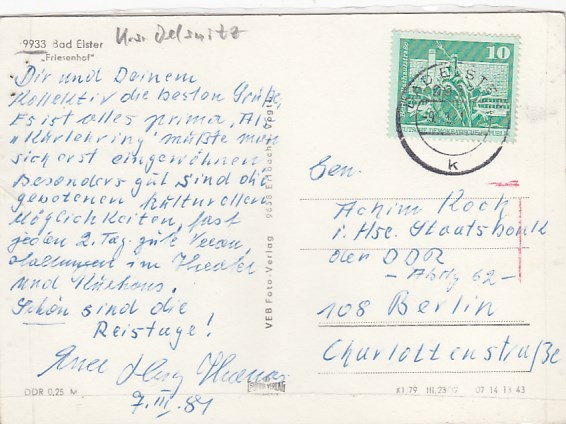 9933 Bad Elster
"Friesenhof"
Krs. Oelsnitz
Dir und Deinem
Kollektiv die besten Grüße.
Es ist alles prima, Als
"Kurlehring" müßte man
sich erst eingewöhnen.
Besonders gut sind die
gebotenen kulturellen
Möglichkeiten, fast
jeden 2. Tag gute Veran,
staltungen im Theater
und Kurhaus.
Schön sind die
Reistage!
Euer
7. III. 81
DDR 0,25 M
VEB Foto-Verlag 9655 Erlbach Vogtl.
10
DEUTSCHE DEMOKRATISCHE REPUBLIK
BAD ELSTER
k
Gen.
Achim Koch
i. Hse. Staatsbank
der DDR
- Abtlg 62 -
108 Berlin
Charlottenstraße
07 14 11 43